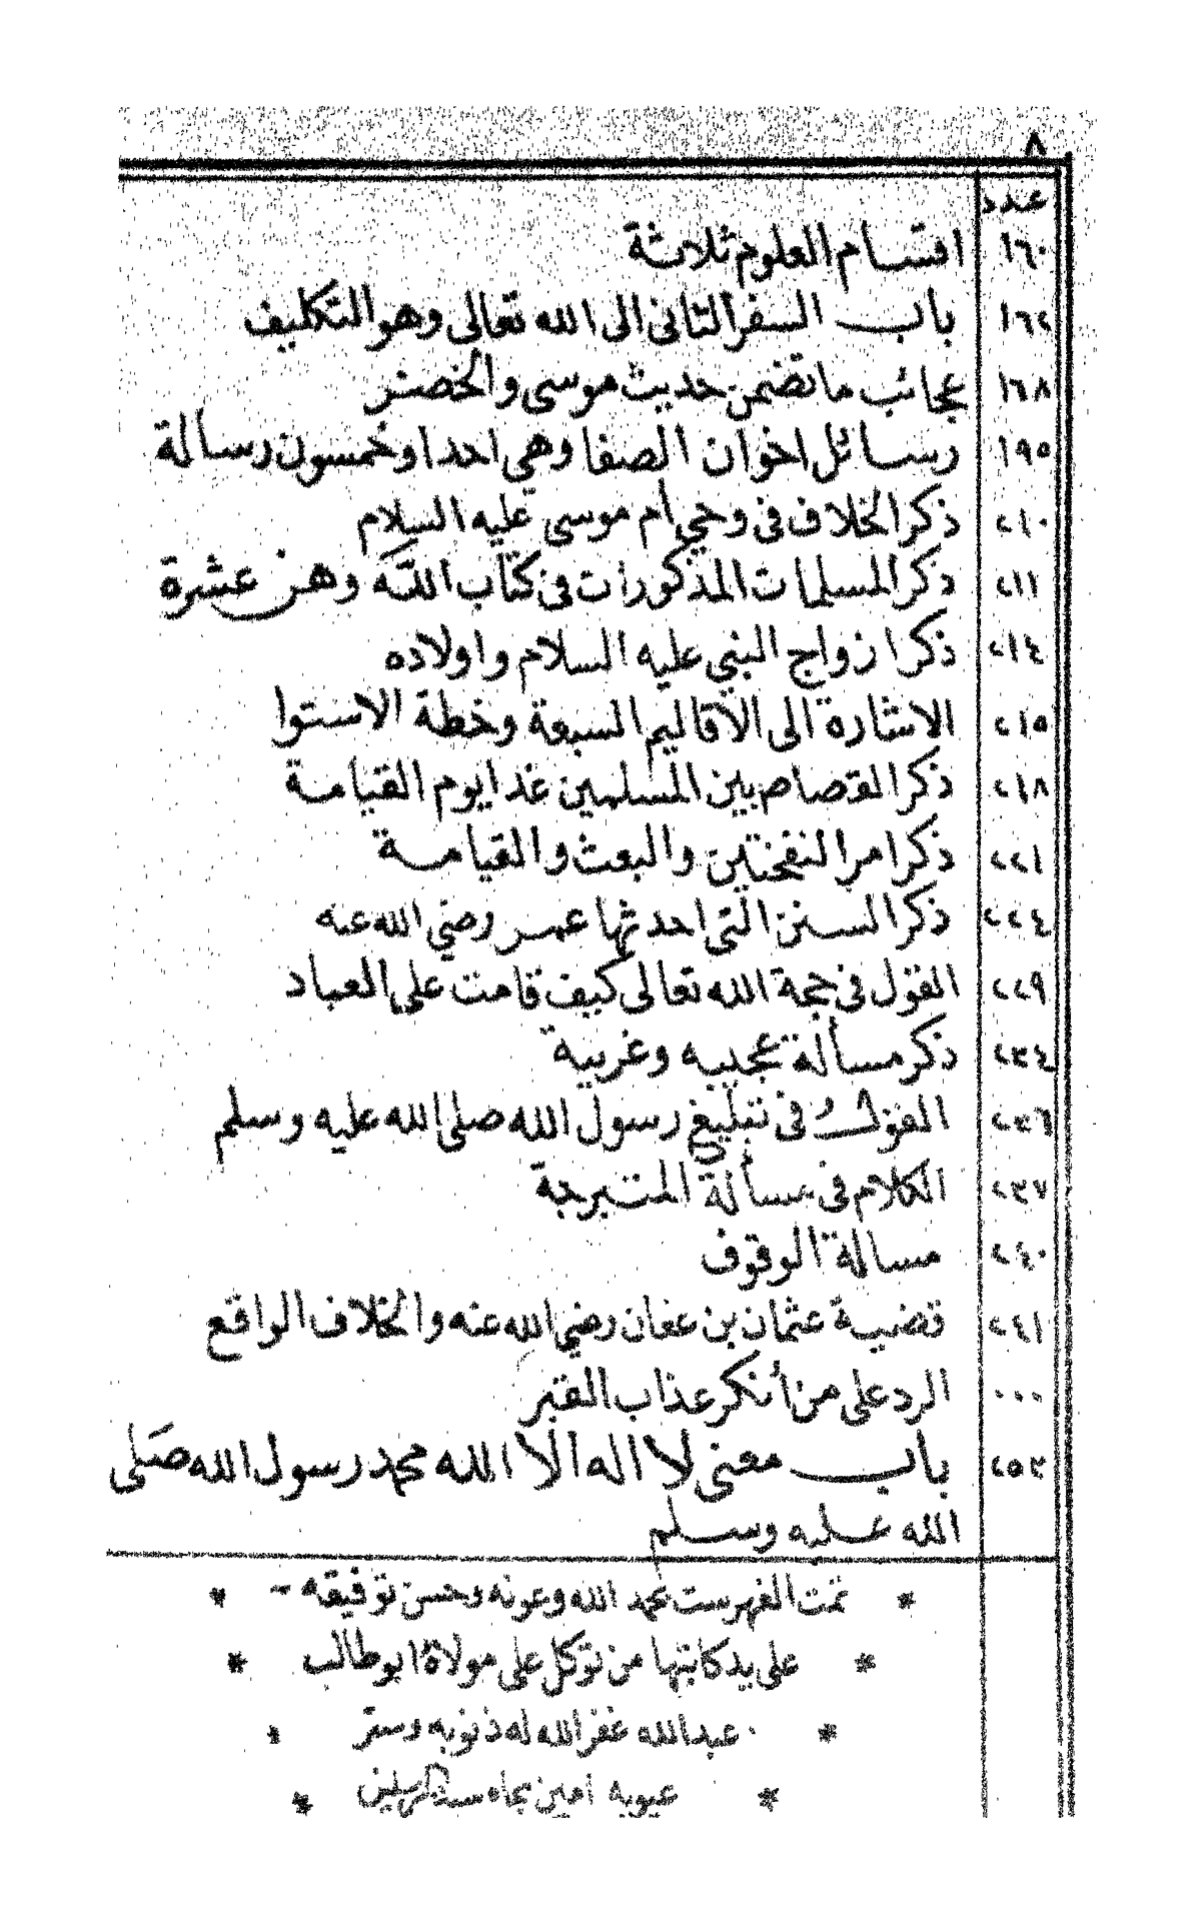 ٨
عدد
١٦٠ اقسام العلوم ثلاثة
١٦٢ باب السفر الثاني الى الله تعالى وهو التكليف
١٦٨ عجائب ما تضمن حديث موسى والخضر
١٩٥ رسائل اخوان الصفا وهي احدا وخمسون رسالة
٢١٠ ذكر الخلاف فى وحي أم موسى عليه السلام
٢١١ ذكر المسلمات المذكورات فى كتاب الله وهن عشرة
٢١٤ ذكر ازواج النبي عليه السلام واولاده
٢١٥ الاشارة الى الأقاليم السبعة وخطة الاستوا
٢١٨ ذكر القصاص بين المسلمين غدا يوم القيامة
٢٢١ ذكر امر النفختين والبعث والقيامة
٢٢٤ ذكر السنن التى احدثها عمر رضي الله عنه
٢٢٩ القول فى حجة الله تعالى كيف قامت على العباد
٢٣٤ ذكر مسألة عجيبه وغريبة
٢٣٦ القول فى تبليغ رسول الله صلى الله عليه وسلم
٢٣٧ الكلام فى مسألة المتبرجة
٢٤٠ مسالة الوقوف
٢٤١ قضية عثمان بن عفان رضي الله عنه والخلاف الواقع
٠٠٠ الرد على من أنكر عذاب القبر
٢٥٣ باب معنى لا اله الا الله محمد رسول الله صلى
الله عليه وسلم
* تمت الفهرست بحمد الله وعونه وحسن توفيقه - *
* على يد كاتبها من توكل على مولاه ابو طالب *
* عبد الله غفر الله له ذنوبه وستر *
* عيوبه امين بجاه سيد المرسلين *